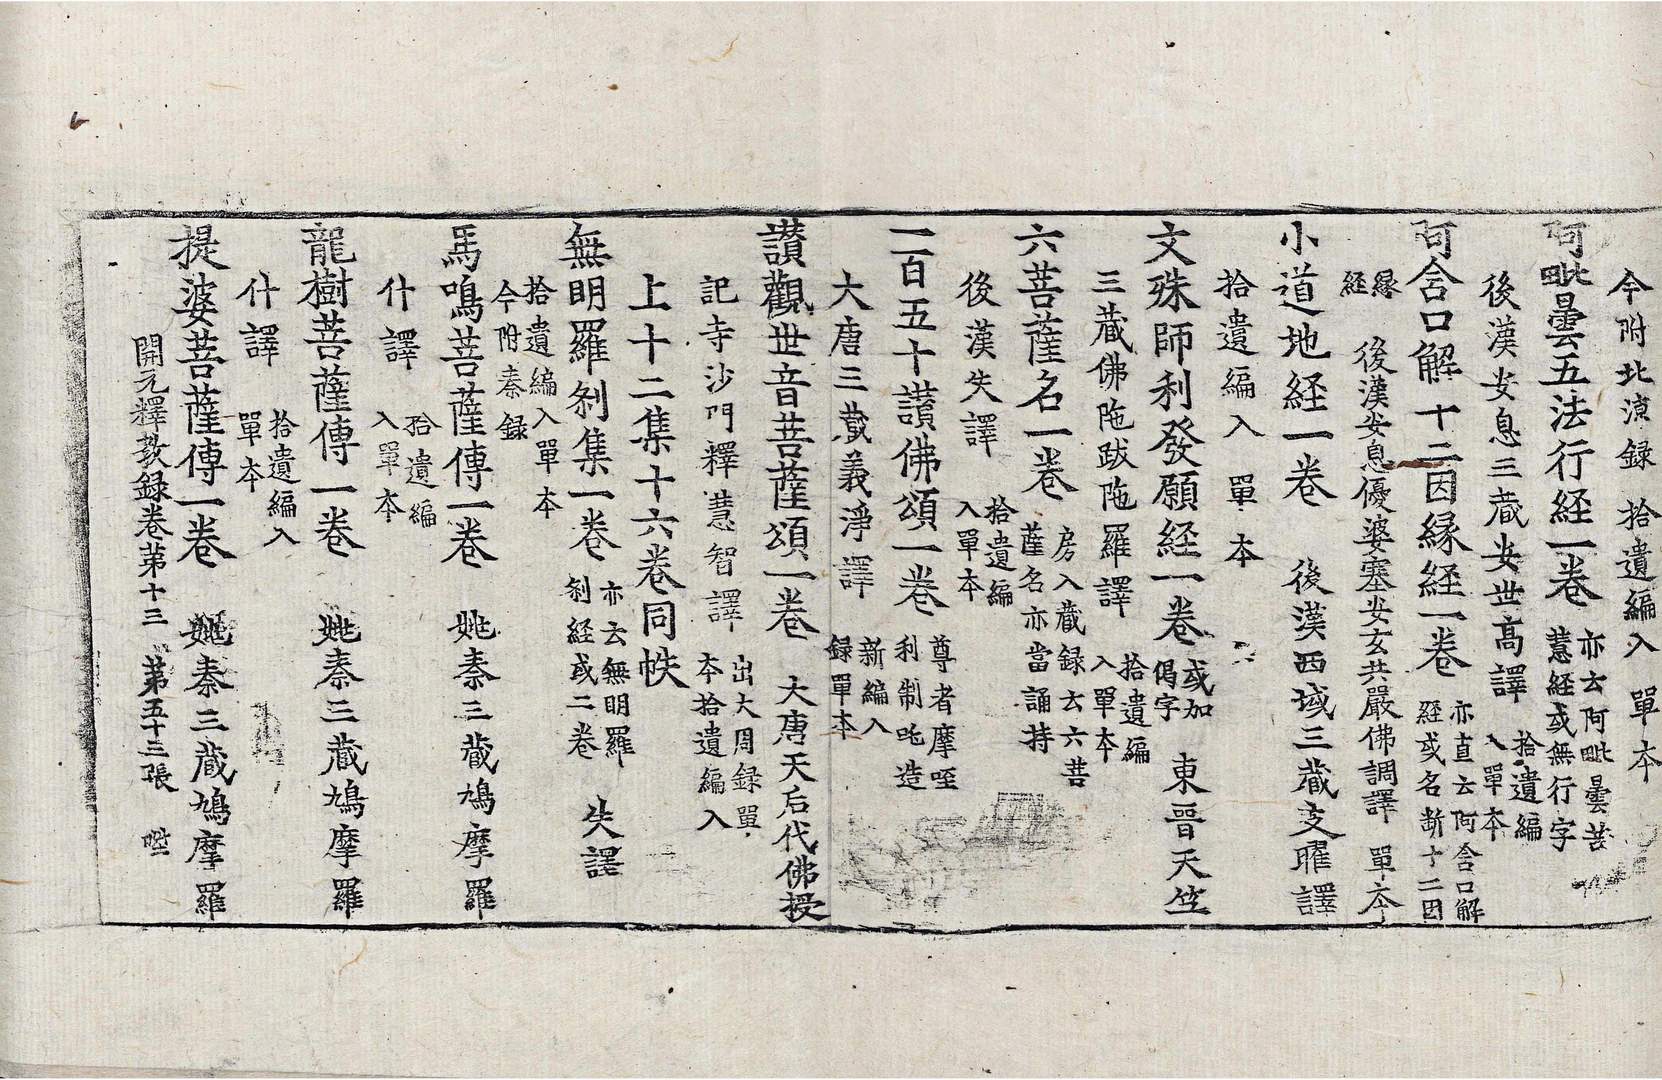 今附北涼録　拾遺編入　單本
阿毗曇五法行経一卷　亦云阿毗曇苦慧経或無行字
後漢安息三藏安世高譯　拾遺編入單本
阿含口解十二因縁経一卷　亦直云阿含口解経或名断十二因
縁経　後漢安息優婆塞安玄共嚴佛調譯　單本
小道地経一卷　後漢西域三藏支曜譯
拾遺編入　單本
文殊師利發願経一卷　或加偈字　東晉天竺
三藏佛陁跋陁羅譯　拾遺編入單本
六菩薩名一卷　房入藏録云六菩薩名亦當誦持
後漢失譯　拾遺編入單本
一百五十讃佛頌一卷　尊者摩咥利制吒造
大唐三藏義淨譯　新編入録單本
讃觀世音菩薩頌一卷　大唐天后代佛授
記寺沙門釋慧智譯　出大周録單本拾遺編入
上十二集十六卷同帙
無明羅刹集一卷　亦云無明羅刹経或二卷　失譯
拾遺編入單本今附秦録
馬鳴菩薩傳一卷　姚秦三藏鳩摩羅
什譯　拾遺編入單本
龍樹菩薩傳一卷　姚秦三藏鳩摩羅
什譯　拾遺編入單本
提婆菩薩傳一卷　姚秦三藏鳩摩羅
開元釋教録卷第十三　第五十三張　陛